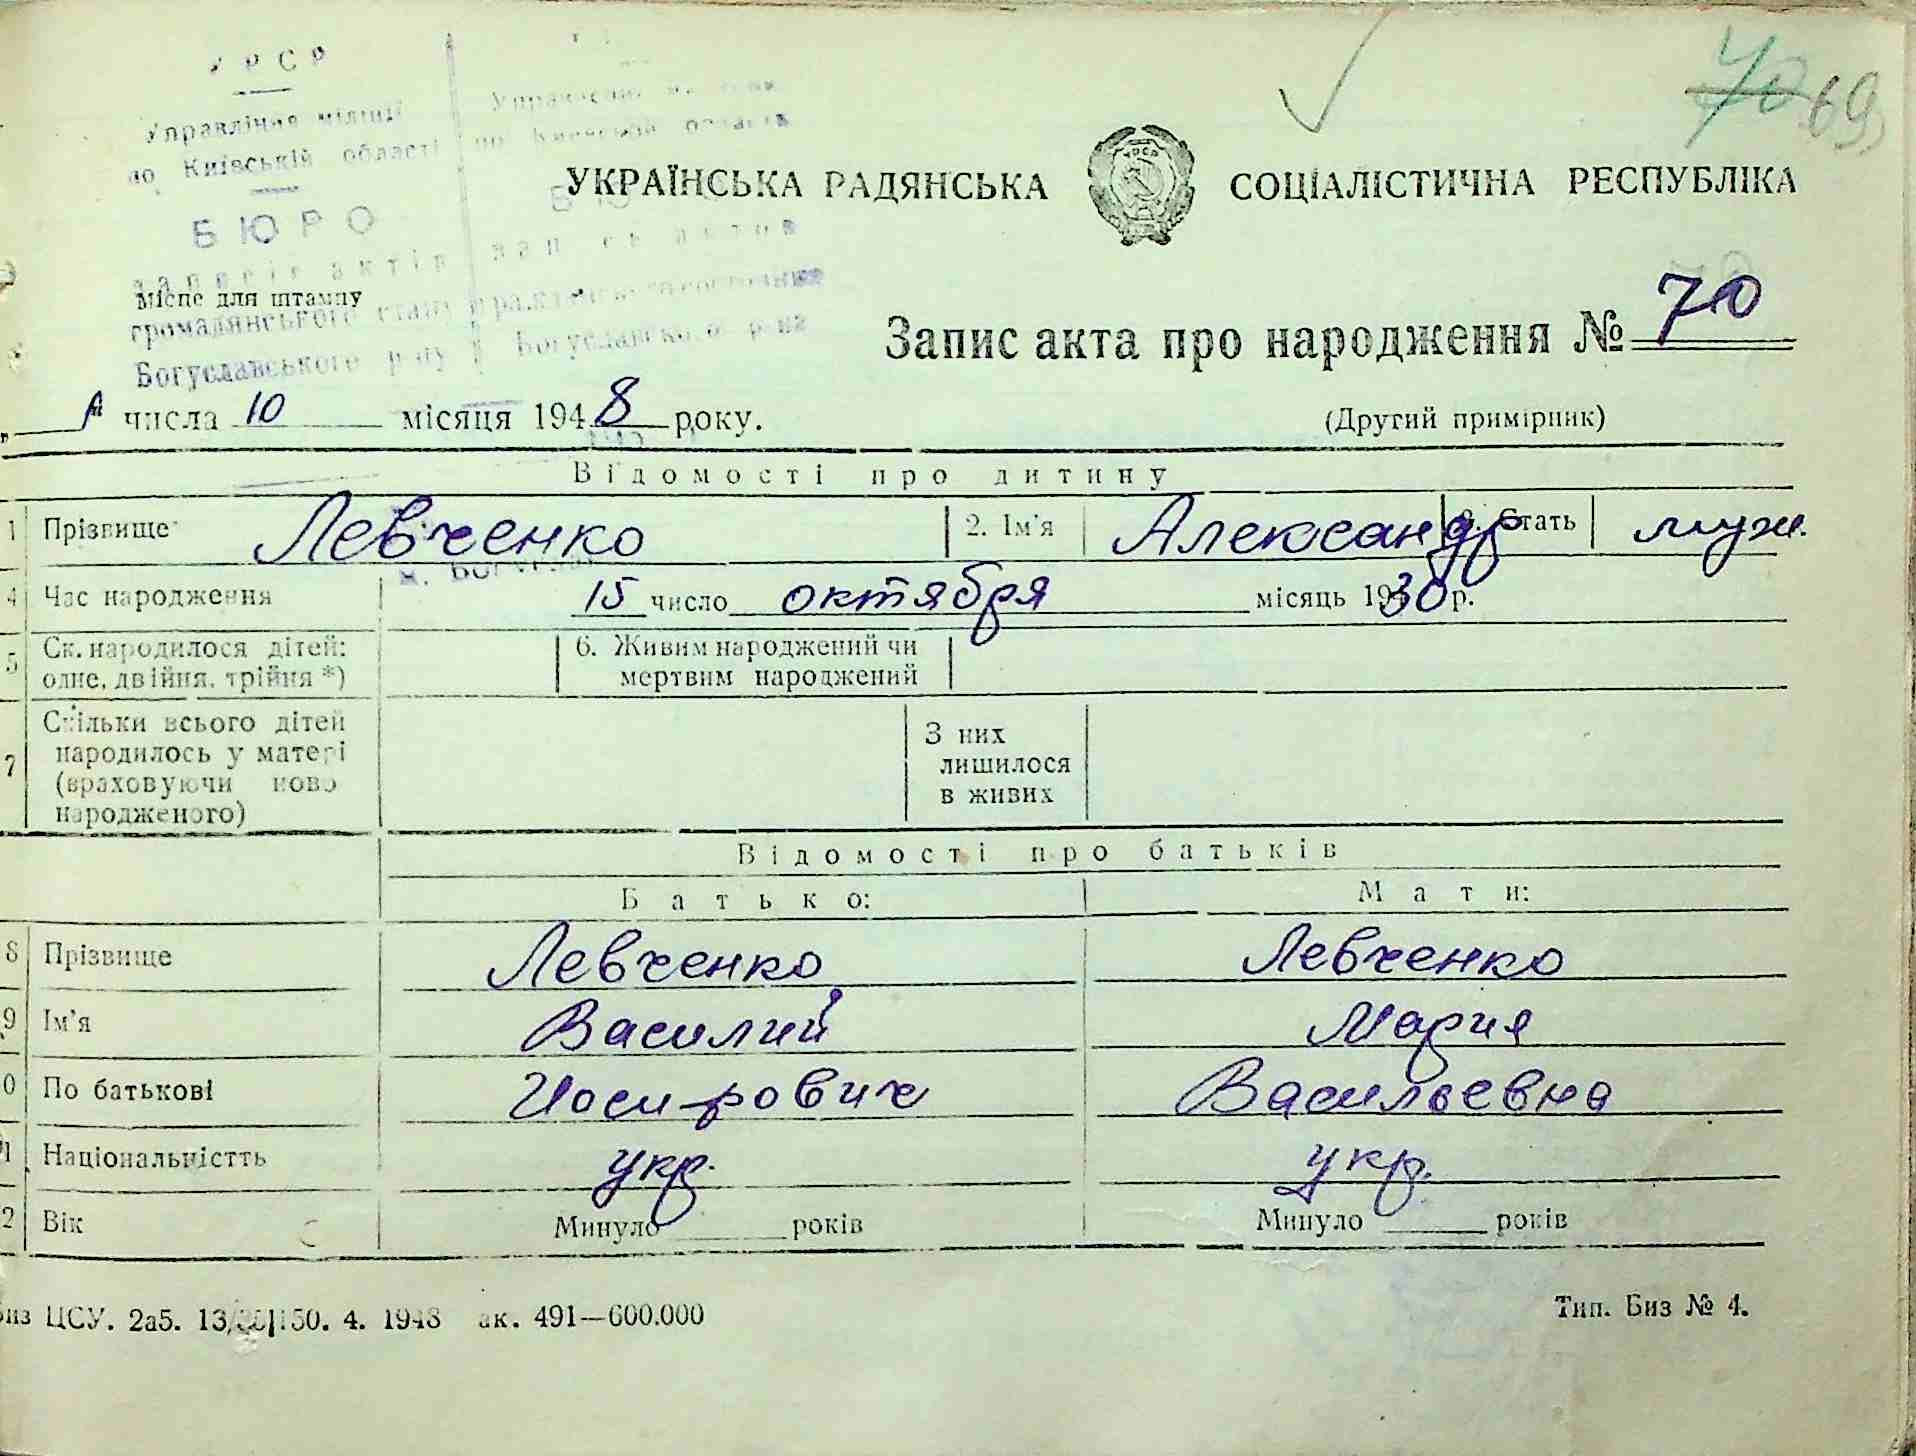 УРСР
Управління міліції
по Київській області по Киевской области
БЮРО
записів актів записи актов
місце для штампу
громадянського стану гражданского состояния
Богуславського р-ну Богуславского р-на
70 69
УКРАЇНСЬКА РАДЯНСЬКА СОЦІАЛІСТИЧНА РЕСПУБЛІКА
Запис акта про народження № 70
числа 10 місяця 1948 року.
(Другий примірник)
Відомості про дитину
1 Прізвище Левченко 2. Ім'я Александр 3. Стать муж.
4 Час народження 15 число октября місяць 1930 р.
5 Ск. народилося дітей: 6. Живим народжений чи
одне, двійня, трійня *) мертвим народжений
Скільки всього дітей З них
7 народилось у матері лишилося
(враховуючи ново в живих
народженого)
Відомості про батьків
Батько: Мати:
8 Прізвище Левченко Левченко
9 Ім'я Василий Мария
0 По батькові Иосипович Васильевна
1 Національністть укр. укр.
2 Вік Минуло років Минуло років
ЦСУ. 2а5. 150. 4. 1948 ак. 491—600.000 Тип. Биз № 4.